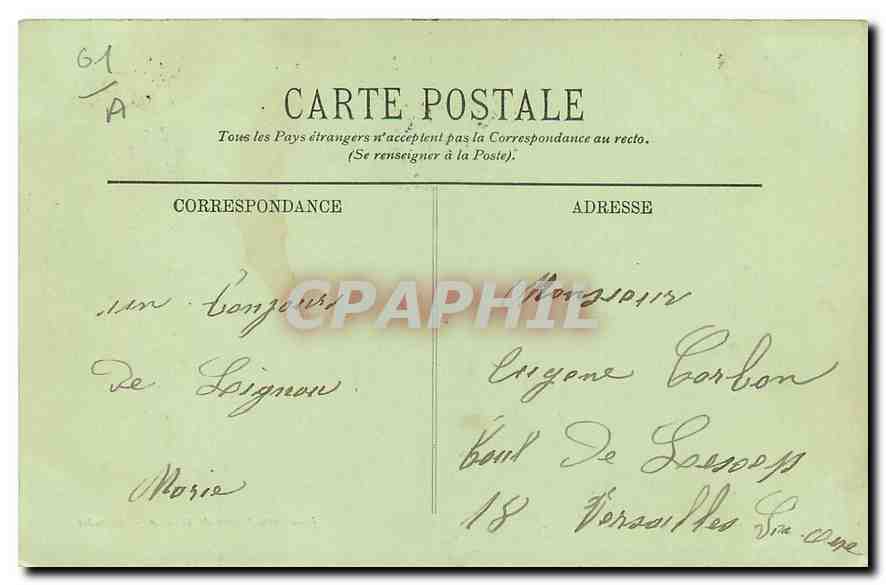 61
A
CARTE POSTALE
Tous les Pays étrangers n'acceptent pas la Correspondance au recto.
(Se renseigner à la Poste).
CORRESPONDANCE
ADRESSE
un bonjour
de Lignou
Marie
CPAPHIL
Monsieur
Eugene Corbon
boul de Lesseps
18 Versailles